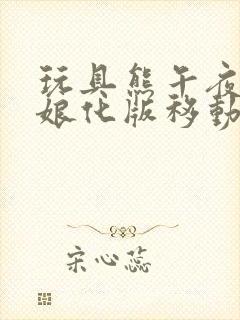 玩具熊午夜
娘化版移動
宋心蕊